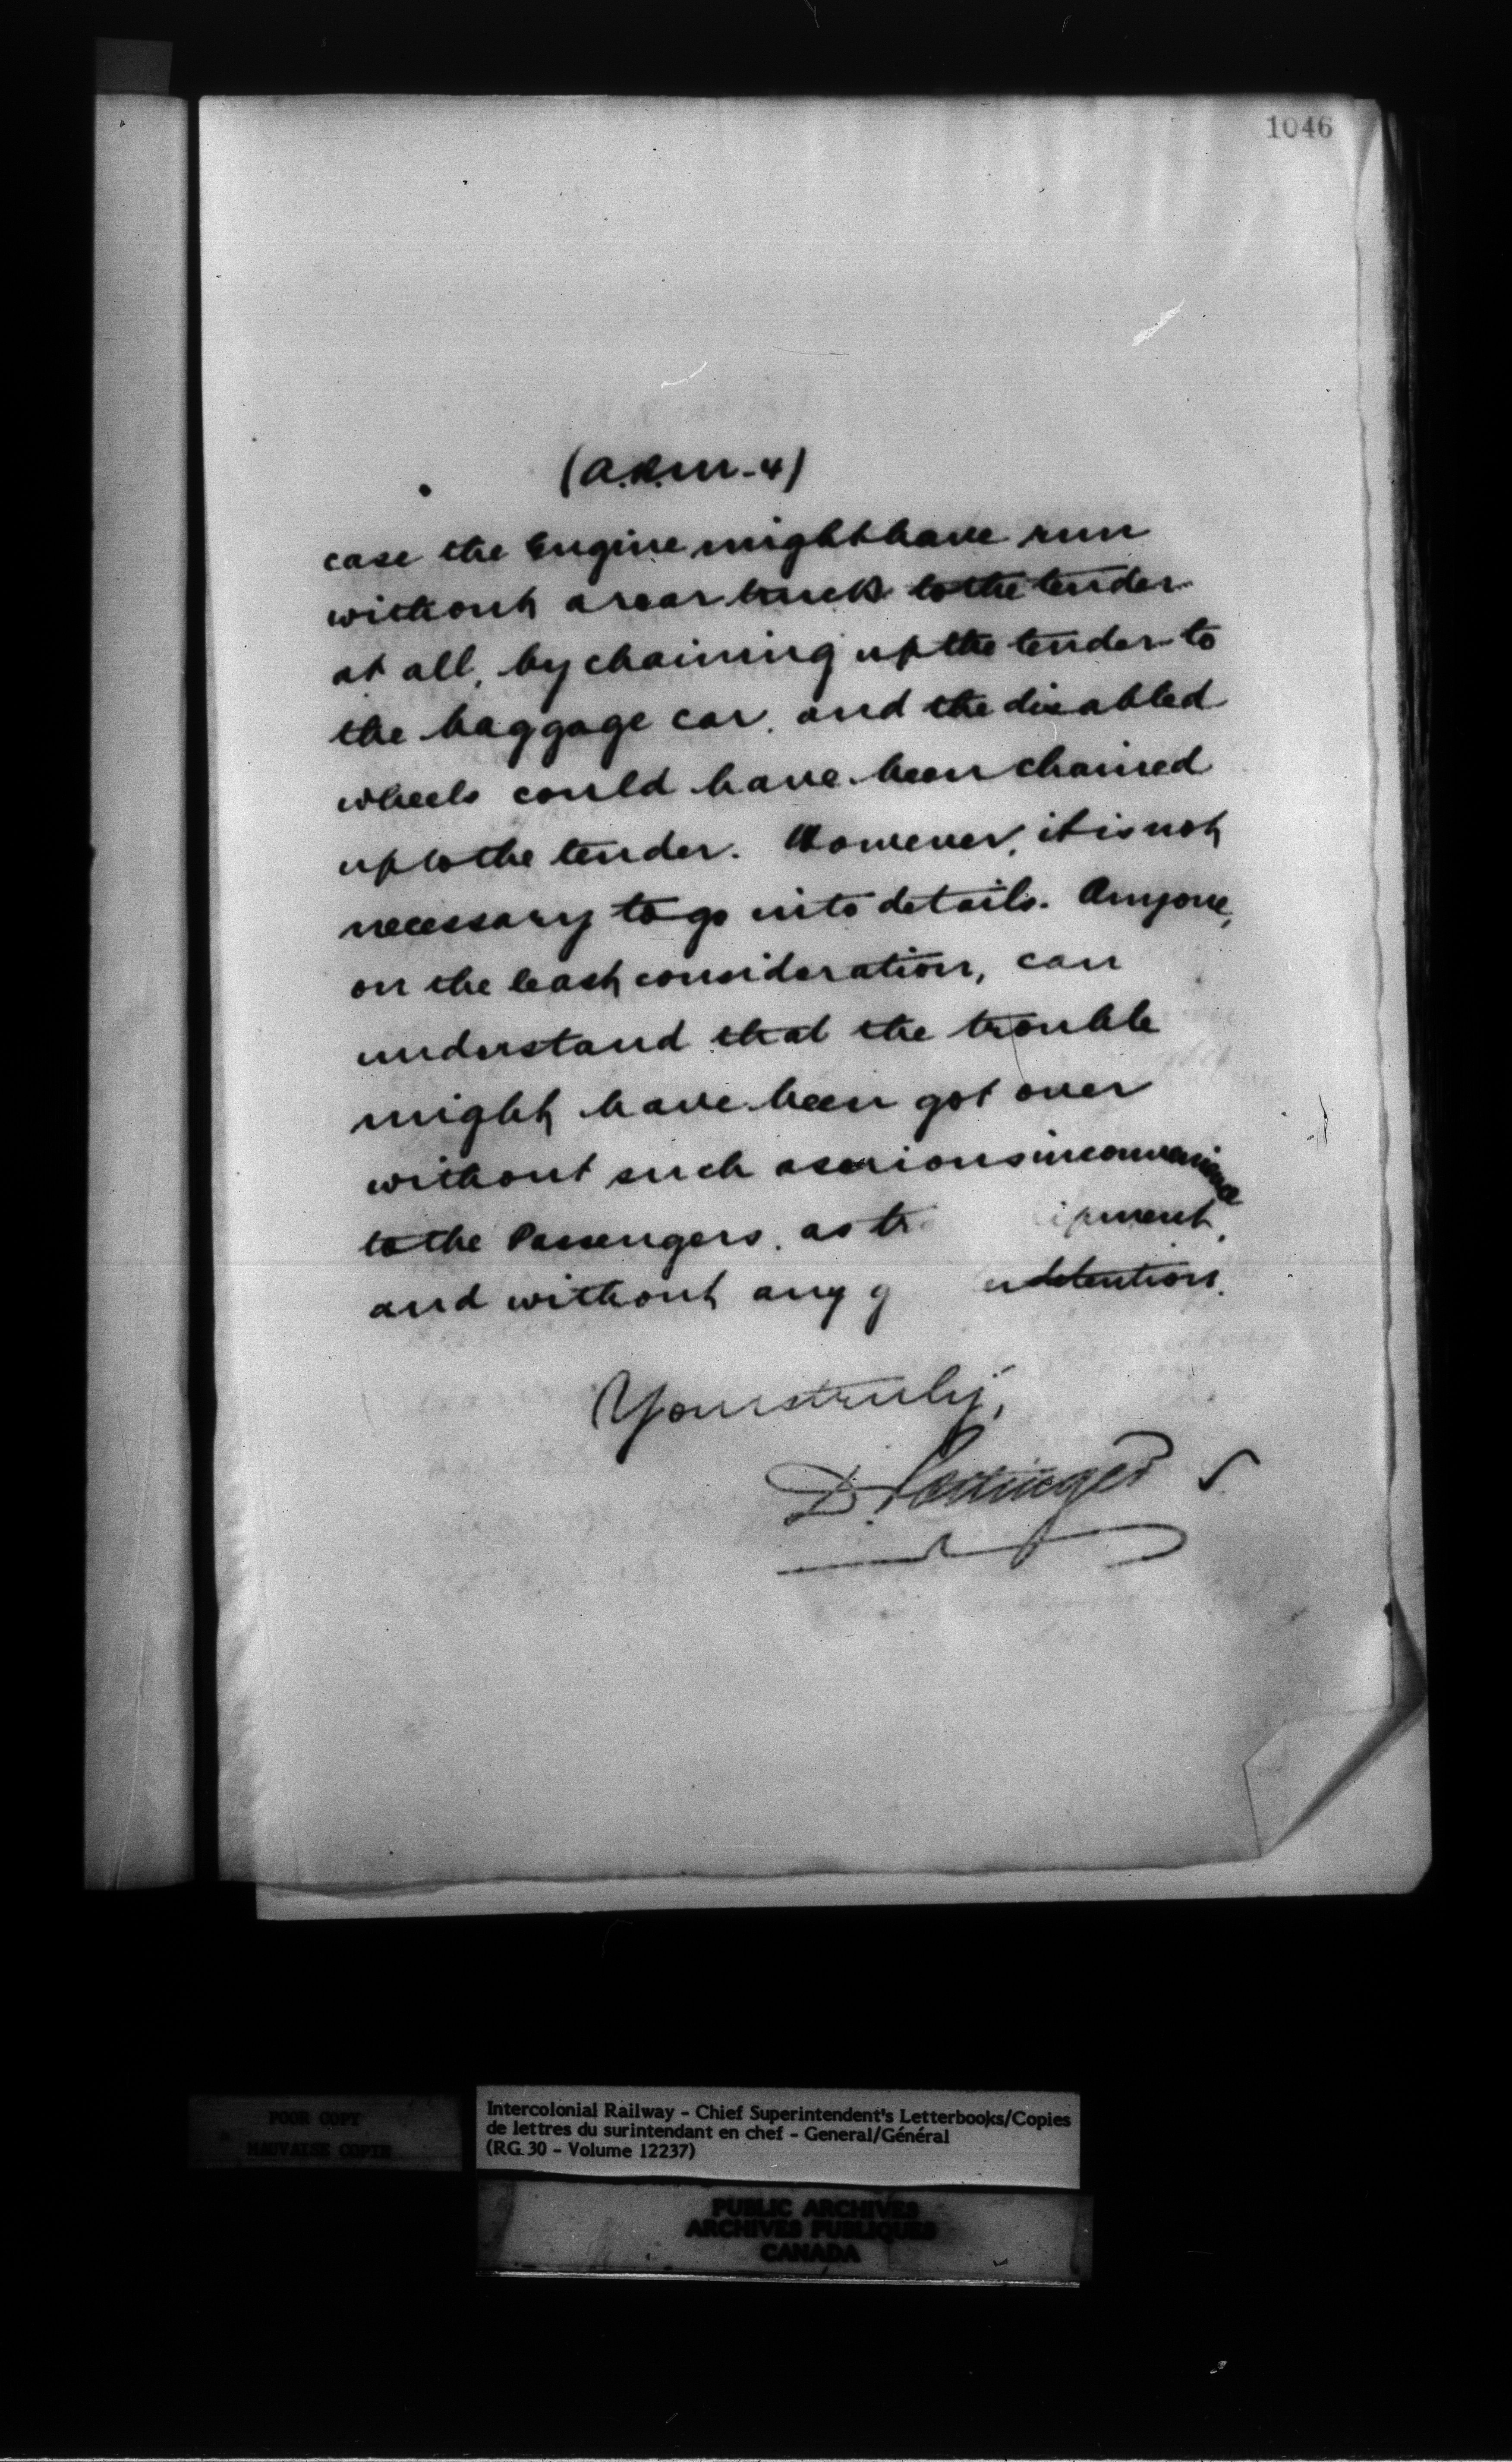 1046
(A.R.M-4)
case the Engine might have run
without a rear truck to the tender
at all, by chaining up the tender to
the baggage car, and the disabled
wheels could have been chained
up to the tender. However, it is not
necessary to go into details. Anyone,
on the least consideration, can
understand that the trouble
might have been got over
without such a serious inconvenience
to the Passengers, as
and without any detention.
Yours truly,
D. Pottinger
POOR COPY
MAUVAISE COPIE
Intercolonial Railway - Chief Superintendent's Letterbooks/Copies
de lettres du surintendant en chef - General/Général
(RG 30 - Volume 12237)
PUBLIC ARCHIVES
ARCHIVES PUBLIQUES
CANADA